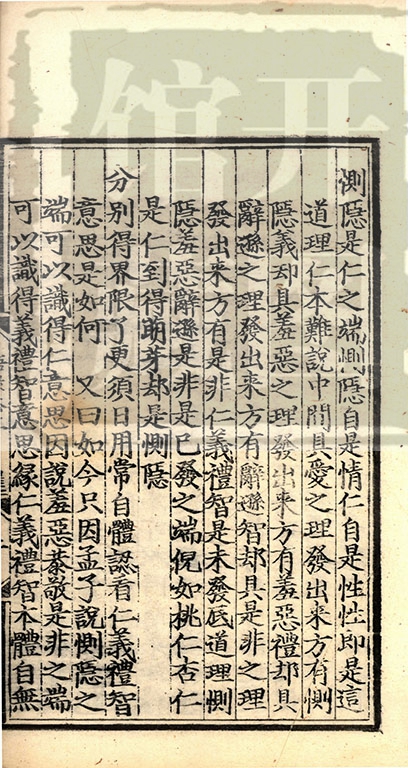 惻隱是仁之端惻隱自是情仁自是性性即是這
道理仁本難說中間具愛之理發出來方有惻
隱義却具羞惡之理發出來方有羞惡禮却具
辭遜之理發出來方有辭遜智却具是非之理
發出來方有是非仁義禮智是未發底道理惻
隱羞惡辭遜是非是已發之端倪如桃仁杏仁
是仁到得萌芽却是惻隱
分别得界限了更須日用常自體認看仁義禮智
意思是如何 又曰如今只因孟子說惻隱之
端可以識得仁意思因說羞惡恭敬是非之端
可以識得義禮智意思緣仁義禮智本體自無